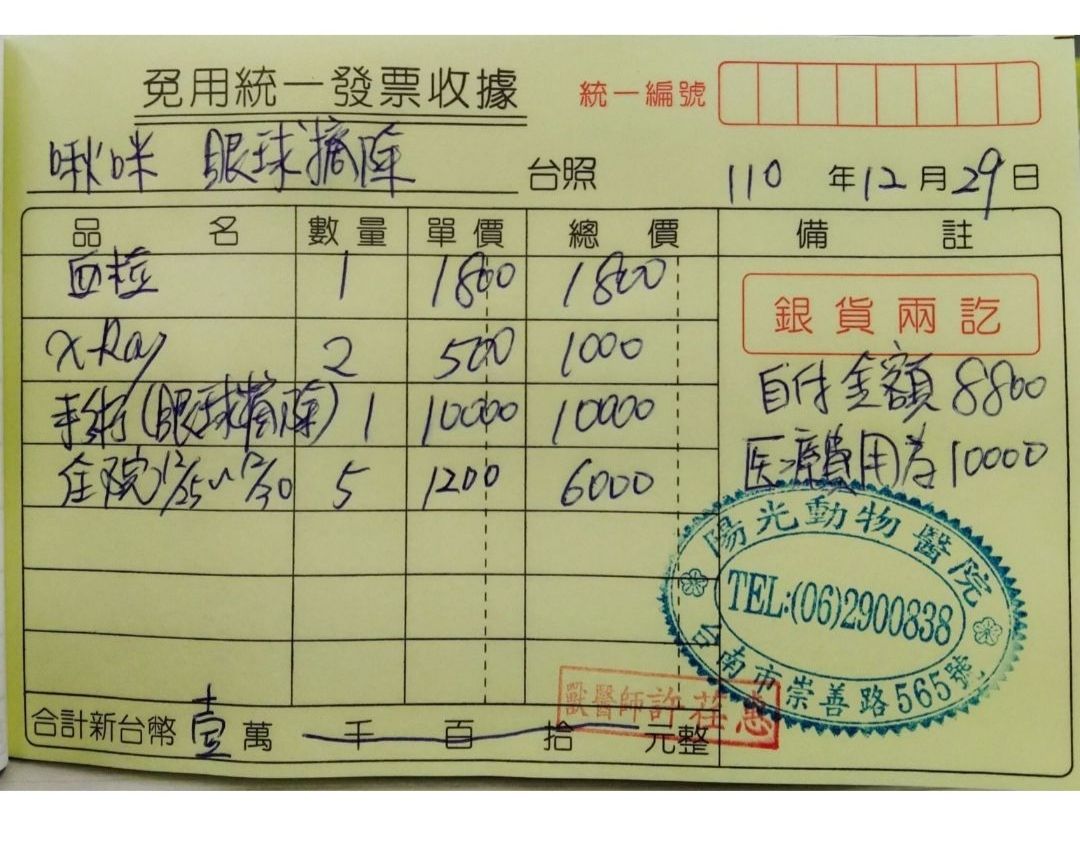 免用統一發票收據
統一編號
啾咪 眼球摘除 台照
110年12月29日
品名 數量 單價 總價 備註
血檢 1 1800 1800
銀貨兩訖
X-Ray 2 500 1000
自付金額 8800
手術(眼球摘除) 1 10000 10000
医療費用為10000
住院12/25~12/30 5 1200 6000
陽光動物醫院
TEL:(06)2900838
台南市崇善路565號
獸醫師許莊惠
合計新台幣壹萬千百拾元整